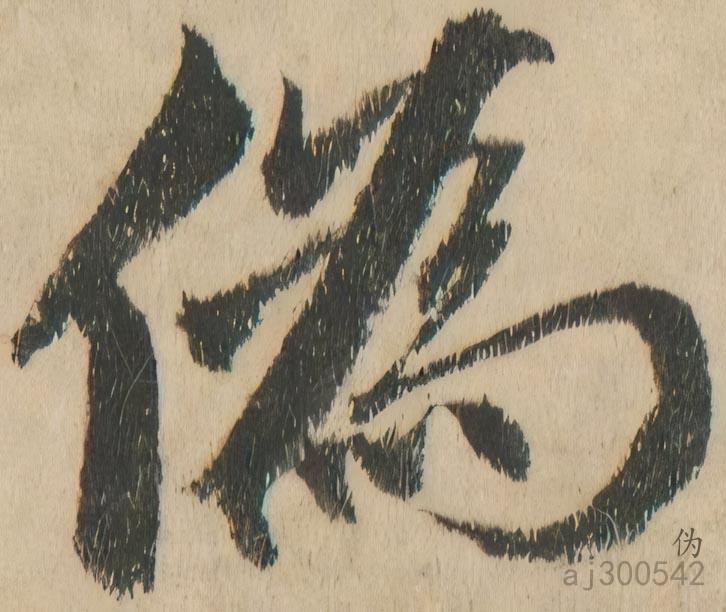 偽
伪
aj300542